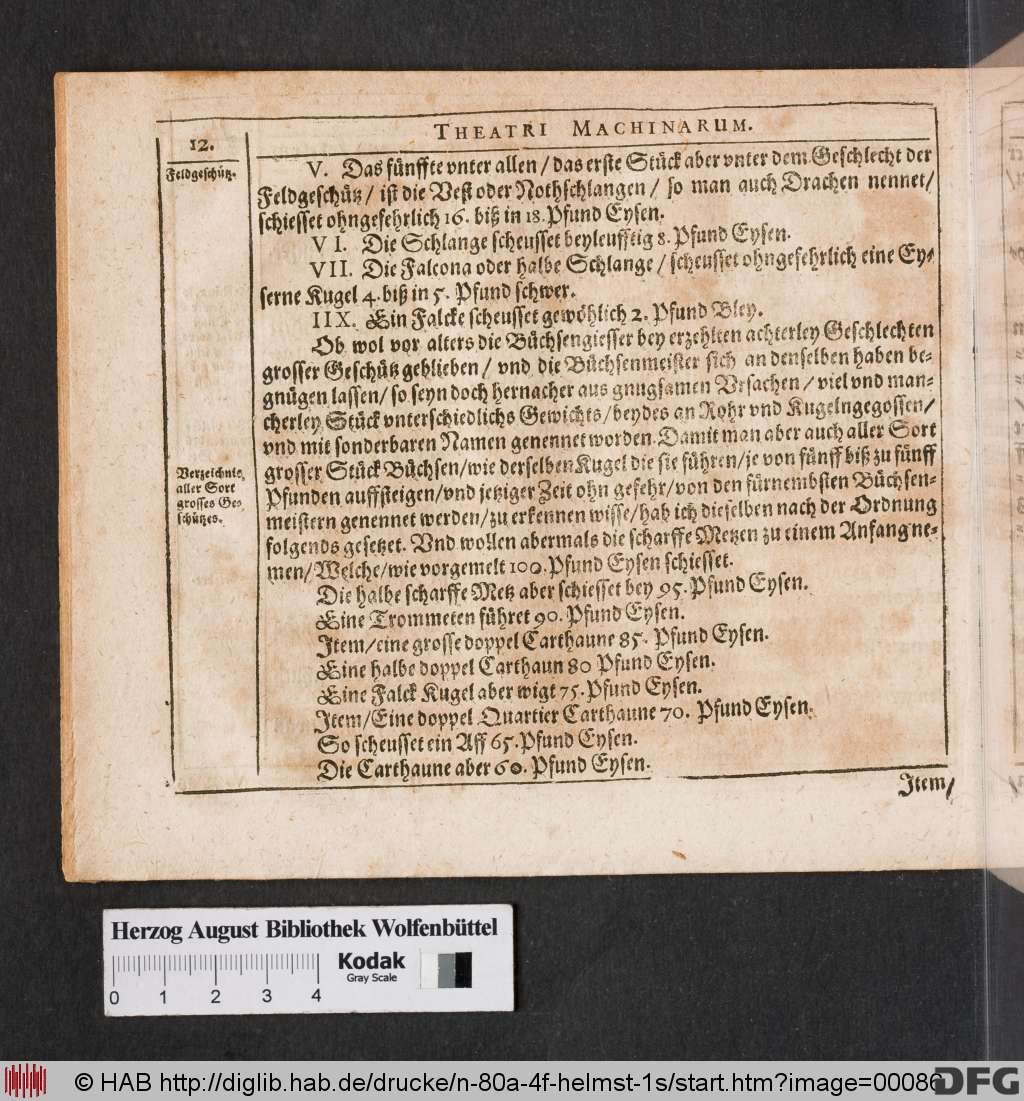 THEATRI MACHINARUM.
12.
Feldgeschütz.
V. Das fünffte vnter allen / das erste Stück aber vnter dem Geschlecht der
Feldgeschütz / ist die Vest oder Nothschlangen / so man auch Drachen nennet /
schiesset ohngefehrlich 16. biß in 18. Pfund Eysen.
VI. Die Schlange scheusset beyleufftig 8. Pfund Eysen.
VII. Die Falcona oder halbe Schlange / scheusset ohngefehrlich eine Ey-
serne Kugel 4. biß in 5. Pfund schwer.
IIX. Ein Falcke scheusset gewöhlich 2. Pfund Bley.
Ob wol vor alters die Büchsengiesser bey erzehlten achterley Geschlechten
grosser Geschütz geblieben / vnd die Büchsenmeister sich an denselben haben be-
gnügen lassen / so seyn doch hernacher aus gnugsamen Vrsachen / viel vnd man-
cherley Stück vnterschiedlichs Gewichts / beydes an Rohr vnd Kugeln gegossen /
vnd mit sonderbaren Namen genennet worden. Damit man aber auch aller Sort
grosser Stück Büchsen / wie derselben Kugel die sie führen / je von fünff biß zu fünff
Pfunden auffsteigen / vnd jetziger Zeit ohn gefehr / von den fürnembsten Büchsen-
meistern genennet werden / zu erkennen wisse / hab ich dieselben nach der Ordnung
folgends gesetzet. Vnd wollen abermals die scharffe Metzen zu einem Anfang ne-
men / Welche / wie vorgemelt 100. Pfund Eysen schiesset.
Verzeichnis
aller Sort
grosses Ge-
schützes.
Die halbe scharffe Metz aber schiesset bey 95. Pfund Eysen.
Eine Trommeten führet 90. Pfund Eysen.
Item / eine grosse doppel Carthaune 85. Pfund Eysen.
Eine halbe doppel Carthaun 80 Pfund Eysen.
Eine Falck Kugel aber wigt 75. Pfund Eysen.
Item / Eine doppel Quartier Carthaune 70. Pfund Eysen.
So scheusset ein Aff 65. Pfund Eysen.
Die Carthaune aber 60. Pfund Eysen.
Item /
Herzog August Bibliothek Wolfenbüttel
Kodak
Gray Scale
0 1 2 3 4
© HAB http://diglib.hab.de/drucke/n-80a-4f-helmst-1s/start.htm?image=00086
DFG